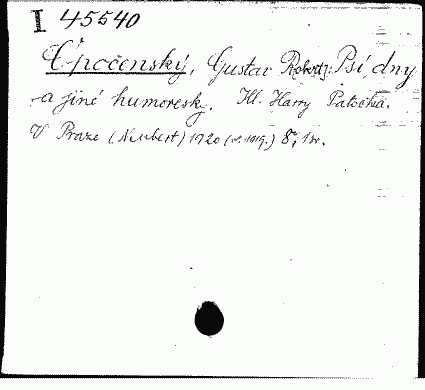 I 45540
Opočenský, Gustav Robert: Psí dny
a jiné humoresky. Il. Harry Patočka.
V Praze (Neubert) 1920 (v. 1919.) 8°, 1 sv.